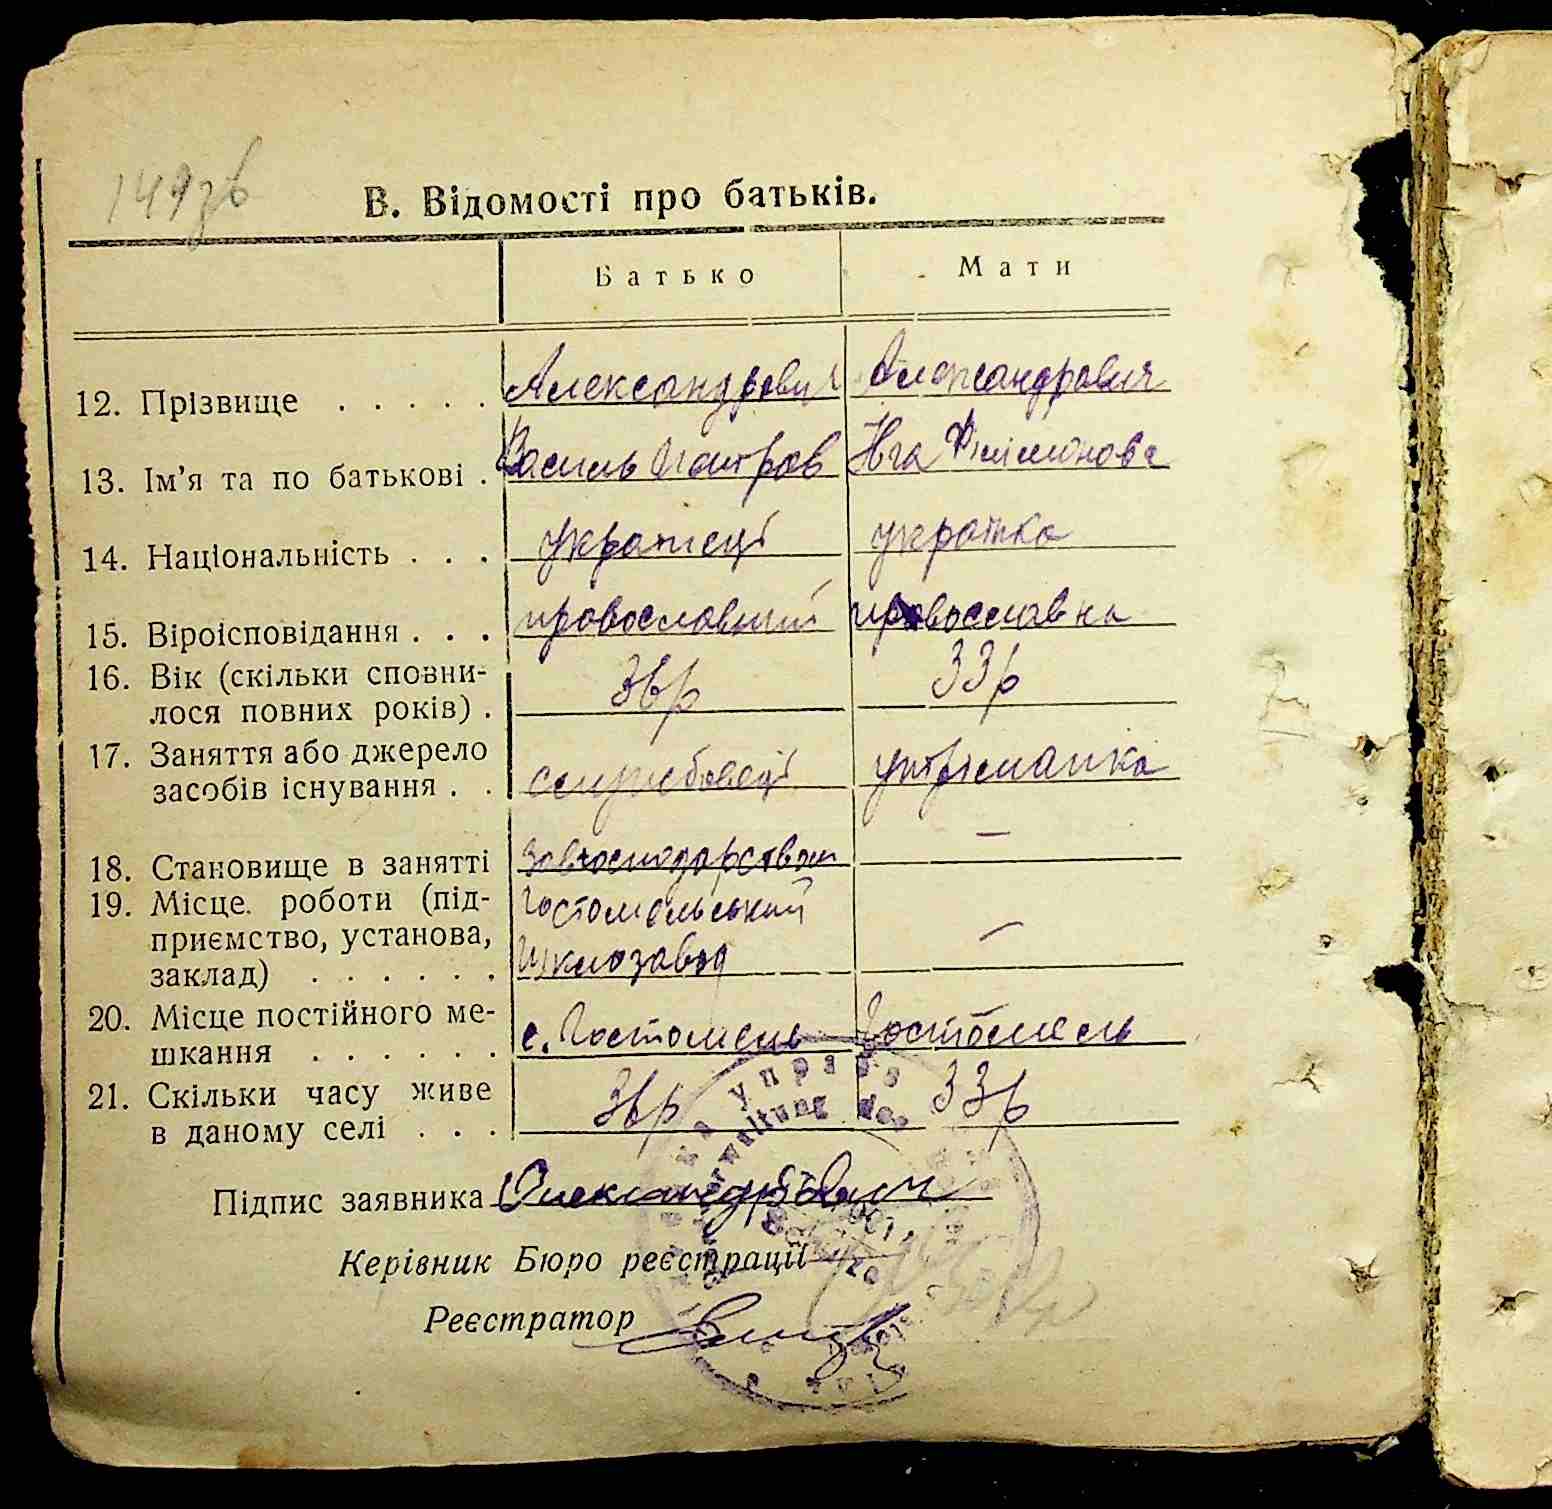 149зв
В. Відомості про батьків.
Батько Мати
12. Прізвище . . . . . Александрович Александрович
13. Ім'я та по батькові . Василь Петров Юга Філімонова
14. Національність . . . українець українка
15. Віроісповідання . . . православний православна
16. Вік (скільки сповни-
лося повних років) . 36р 33р
17. Заняття або джерело
засобів існування . . службовець утріманка
18. Становище в занятті Завгосподарством —
19. Місце. роботи (під- Гостомельський
приємство, установа, —
заклад) . . . . . . Шклозавод
20. Місце постійного ме-
шкання . . . . . . с. Гостомель Гостомель
21. Скільки часу живе
в даному селі . . . 36р 33р
управа
rwaltung des
Підпис заявника Олександрович
Керівник Бюро реєстрації
Реєстратор